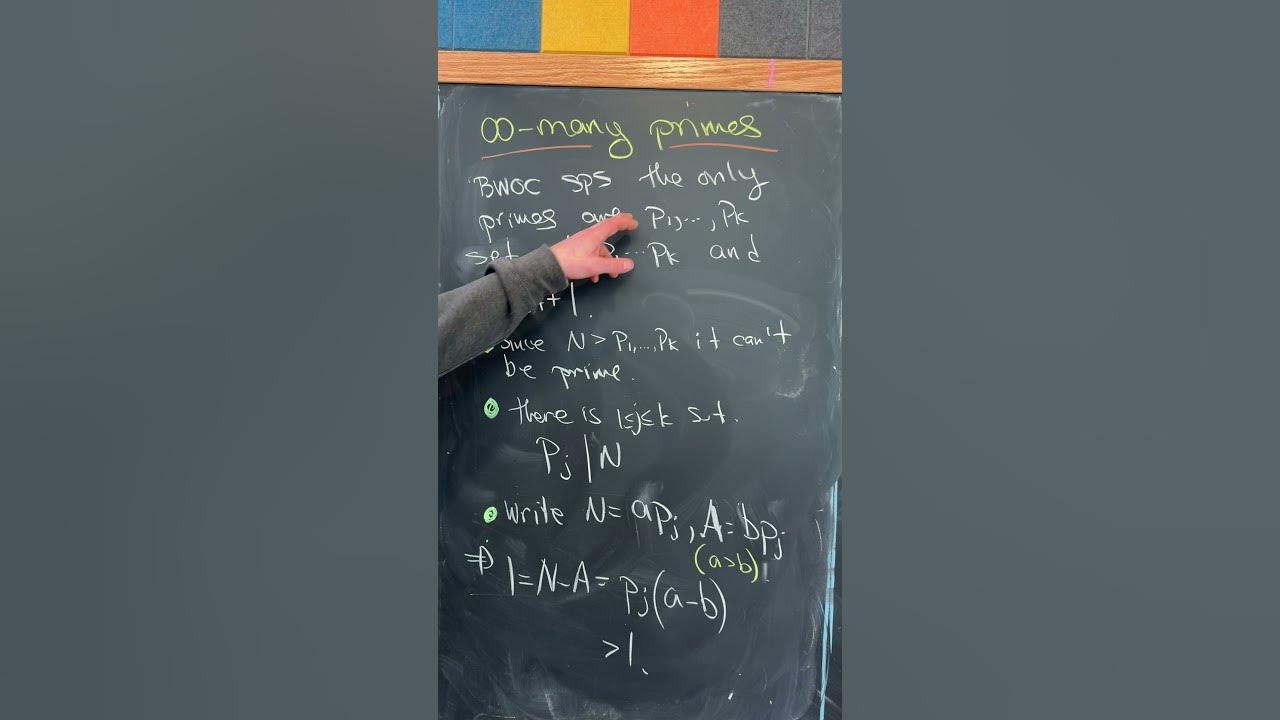 ∞-many primes
BWOC sps the only
primes are P₁,...,Pₖ
set P₁...Pₖ and
+1.
since N > P₁,...,Pₖ it can't
be prime.
there is 1≤j≤k s.t.
Pⱼ | N
write N = aPⱼ, A = bPⱼ
(a>b)
⇒ 1 = N - A = Pⱼ(a-b)
>1.